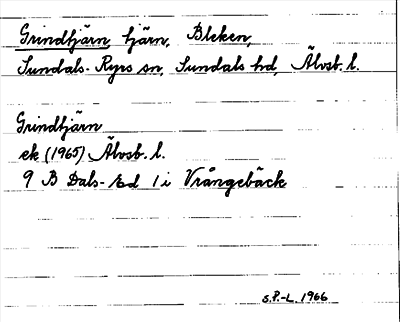 Grindtjärn, tjärn, Bleken,
Sundals-Ryrs sn, Sundals hd, Älvsb. l.
Grindtjärn
ek (1965) Älvsb. l.
9 B Dals-Ed 1 i Vrångebäck
S.P.-L. 1966